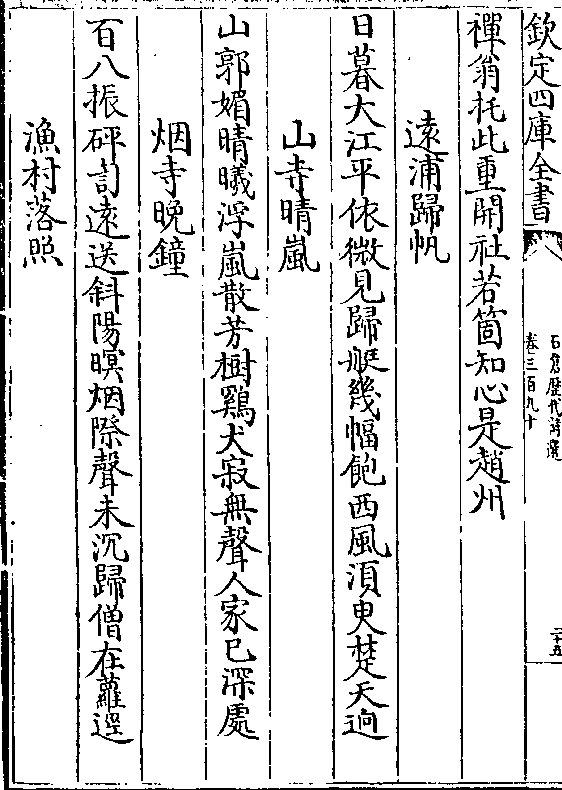 欽定四庫全書
石倉歷代詩選
卷三百九十
二十五
禪翁托此重開社若箇知心是趙州
遠浦歸帆
日暮大江平依微見歸艇幾幅飽西風湏臾楚天逈
山寺晴嵐
山郭媚晴曦浮嵐散芳樹鷄犬寂無聲人家已深處
烟寺晚鐘
百八振砰訇遠送斜陽暝烟際聲未沉歸僧在蘿逕
漁村落照